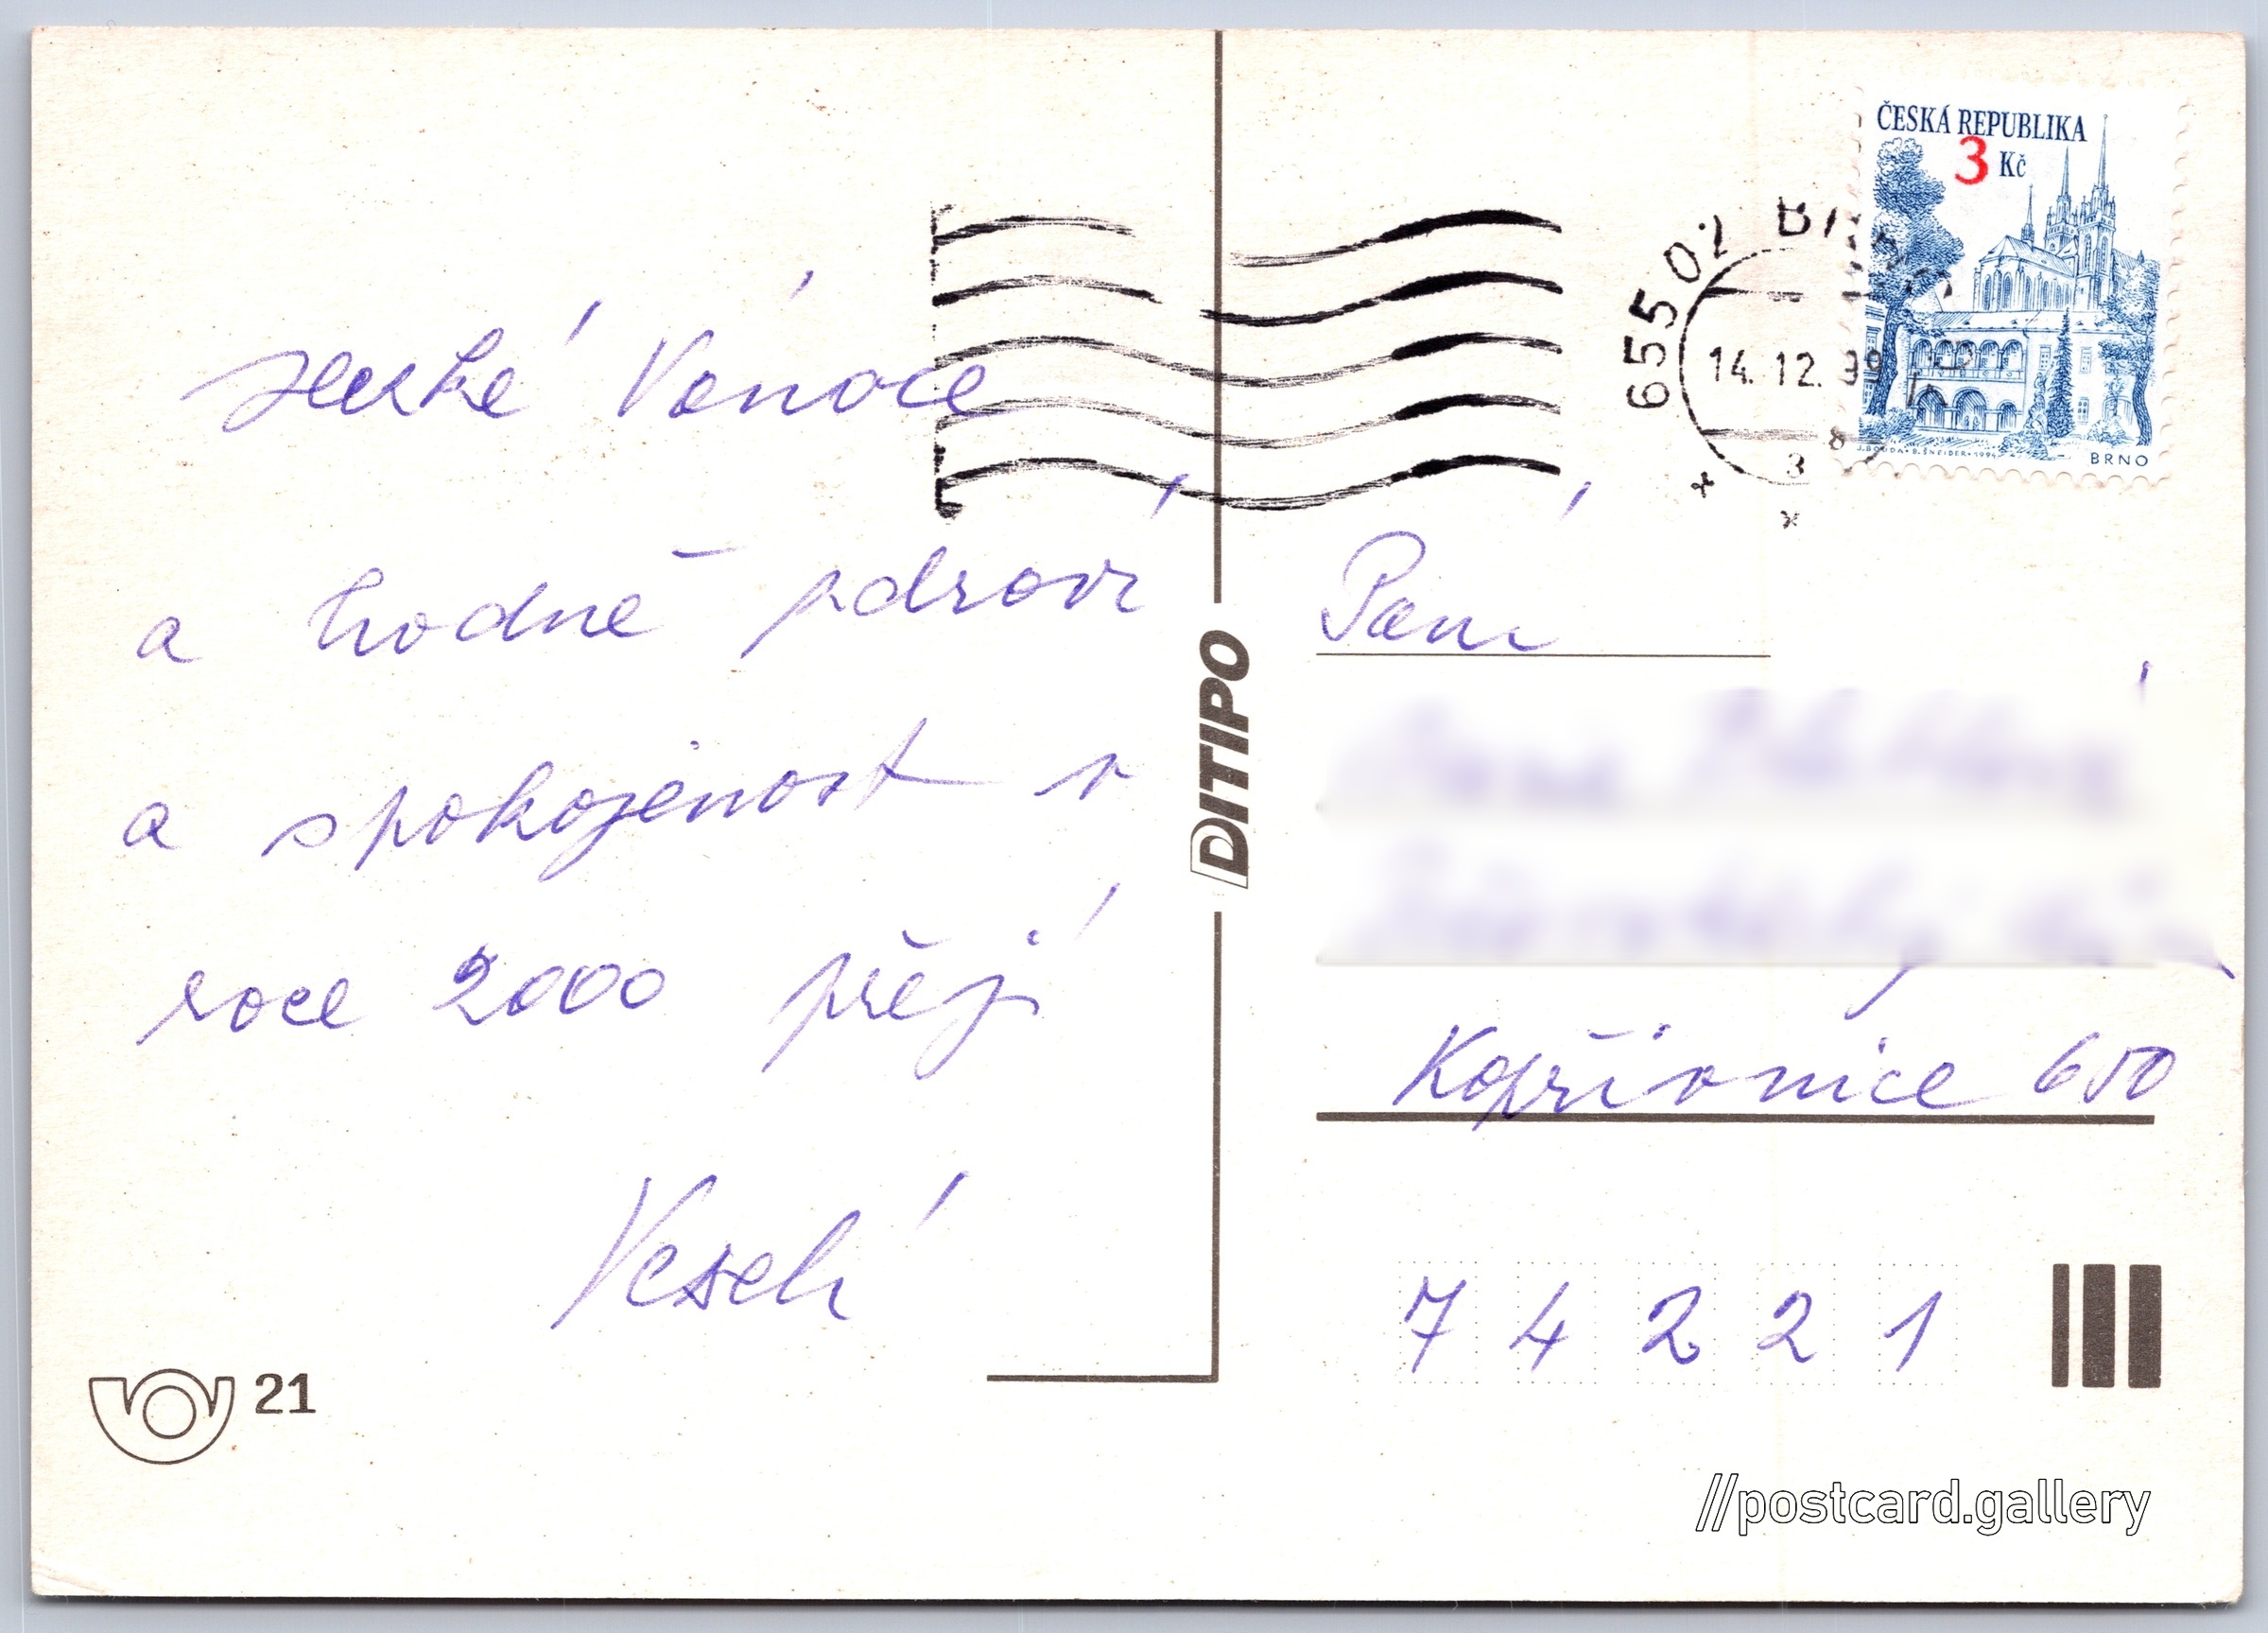 Hezké Vánoce
a hodně zdraví
a spokojenost v
roce 2000 přejí
Veselí
21
DITIPO
ČESKÁ REPUBLIKA
3 Kč
J.BOUDA•B.ŠNEIDER•1994
BRNO
655 02
14.12.99
3
Paní
Kopřivnice 650
7 4 2 2 1
//postcard.gallery